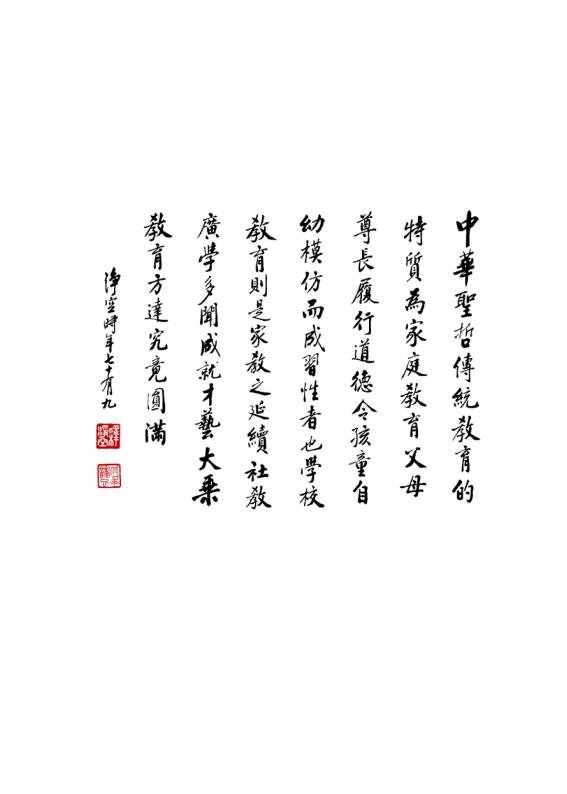 中華聖哲傳統教育的
特質為家庭教育父母
尊長履行道德令孩童自
幼模仿而成習性者也學校
教育則是家教之延續社教
廣學多聞成就才藝大乘
教育方達究竟圓滿
淨空時年七十有九